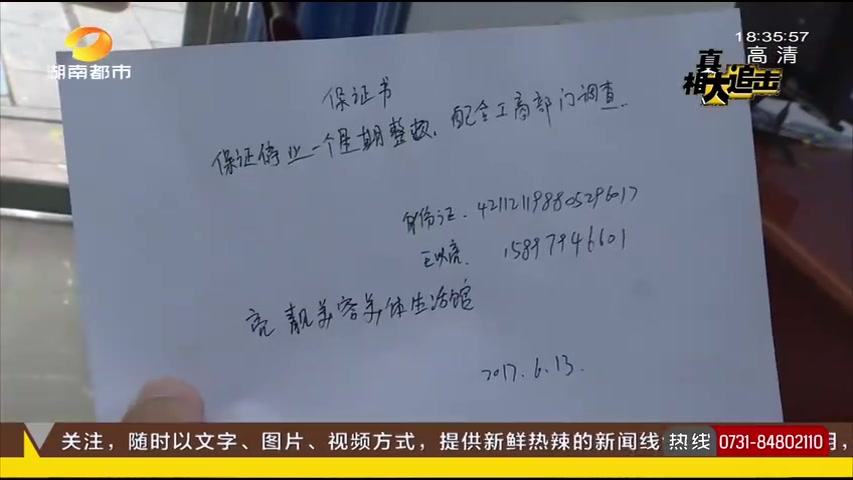 湖南都市
18:35:57
高清
真相大追击
保证书
保证停业一个星期整改，配合工商部门调查.
身份证. 421121198805296017
王以亮. 15897946601
亮靓美容美体生活馆
2017.6.13.
关注，随时以文字、图片、视频方式，提供新鲜热辣的新闻线
热线 0731-84802110